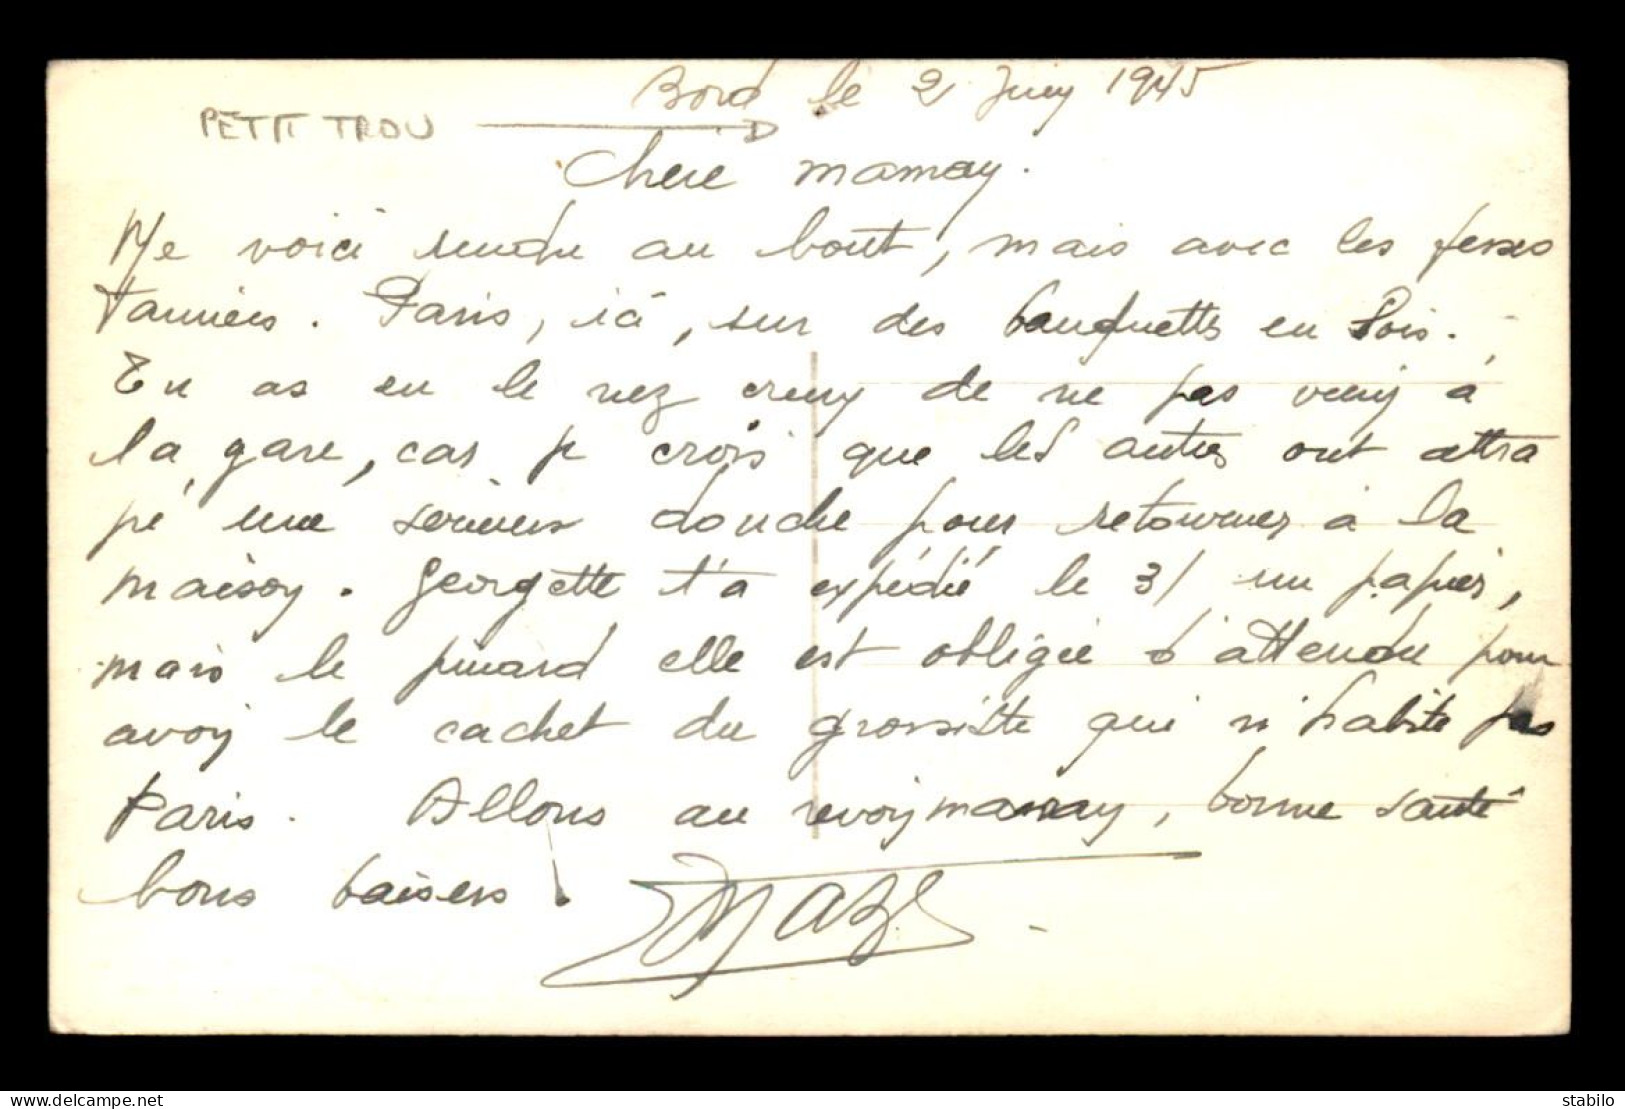 Bord le 2 Juin 1945
PETIT TROU
Chere maman.
Me voici rendu au bout, mais avec les fesses
tannées. Paris, ici, sur des banquettes en bois.
Tu as eu le nez creux de ne pas venir à
la gare, car je crois que les autres ont attra
pé une serieuse douche pour retourner à la
maison. Georgette t'a expédié le 31 un papier,
mais le pinard elle est obligée d'attendre pour
avoir le cachet du grossiste qui n'habite pas
Paris. Allons au revoir maman, bonne santé
bons baisers.
stabilo